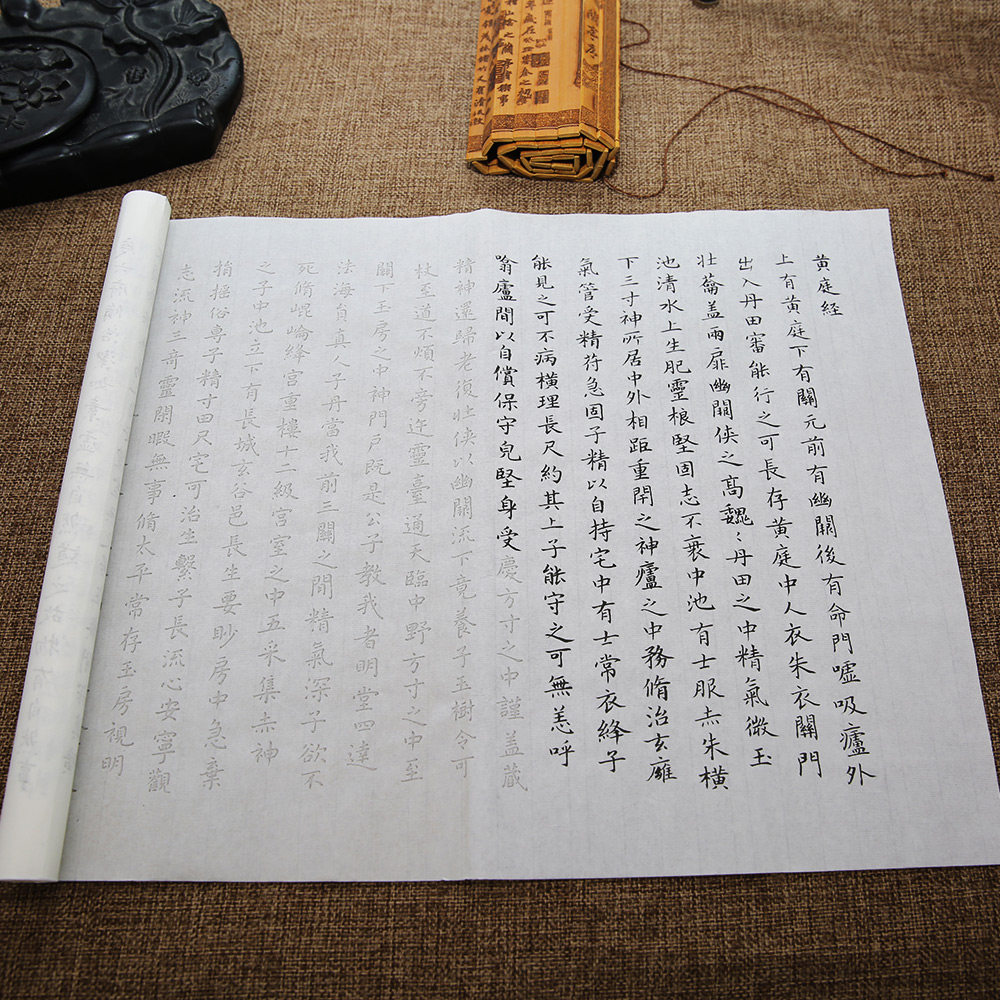 黄庭経
上有黄庭下有關元前有幽闕後有命門噓吸廬外
出入丹田審能行之可長存黄庭中人衣朱衣關門
壮蘥盖兩扉幽闕侠之髙巍〻丹田之中精氣微玉
池清水上生肥靈根堅固志不衰中池有士服赤朱橫
下三寸神所居中外相距重閇之神廬之中務脩治玄廱
氣管受精符急固子精以自持宅中有士常衣絳子
能見之可不病橫理長尺約其上子能守之可無恙呼
噏廬間以自償保守完堅身受慶方寸之中謹盖蔵
精神還歸老復壮侠以幽關流下竟養子玉樹令可
杖至道不煩不旁迕靈臺通天臨中野方寸之中至
關下玉房之中神門戶既是公子教我者明堂四達
法海貟真人子丹當我前三關之閒精氣深子欲不
死脩崐崘絳宮重樓十二級宮室之中五采集赤神
之子中池立下有長城玄谷邑長生要眇房中急棄
捐搖俗専子精寸田尺宅可治生繫子長流心安寧觀
志流神三奇靈閑暇無事脩太平常存玉房視明